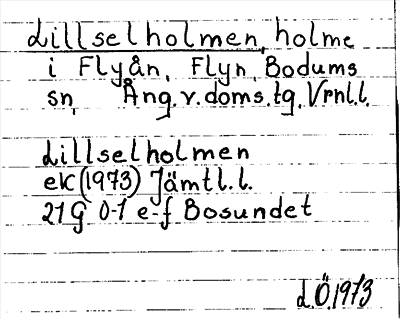 Lillselholmen, holme
i Flyån, Flyn, Bodums
sn, Ång.v.doms.tg, Vrnl.l.
Lillselholmen
ek (1973) Jämtl.l.
21G 0-1 e-f Bosundet
L.Ö.1973